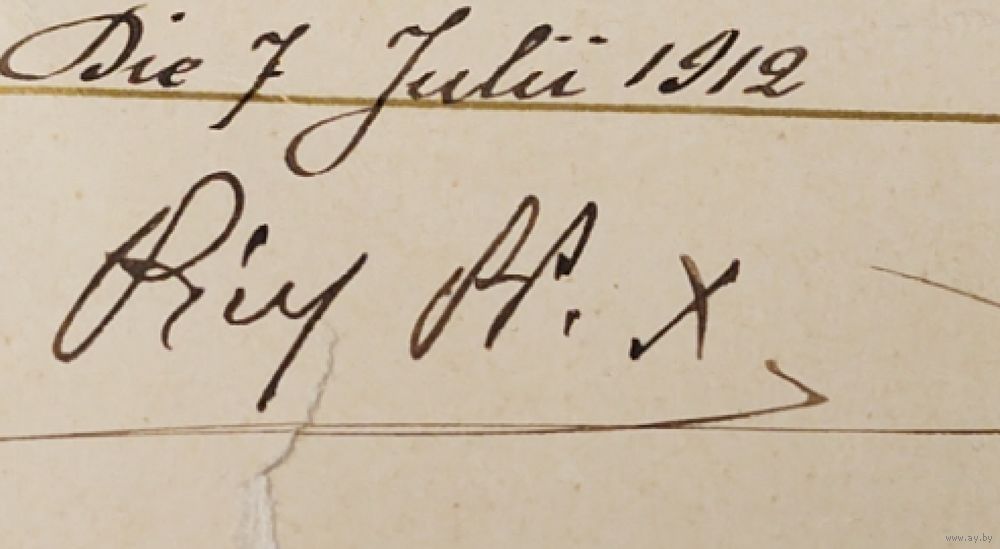 Die 7 Julii 1912
Pius PP. X
www.ay.by